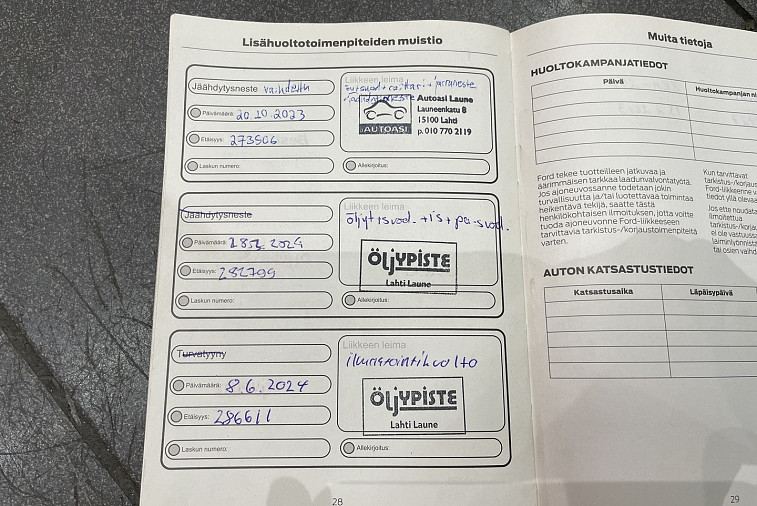 Lisähuoltotoimenpiteiden muistio
Jäähdytysneste vaihdettu
Päivämäärä: 20.10.2023
Etäisyys: 273506
Laskun numero:
Liikkeen leima
+ jarruneste
Autoasi Laune
Launeenkatu 8
15100 Lahti
p. 010 770 2119
AUTOASI
Allekirjoitus:
Jäähdytysneste
Päivämäärä: 28.2.2024
Etäisyys: 282799
Laskun numero:
Liikkeen leima
öljyt+suod. +is+pa-suod.
ÖLJYPISTE
Lahti Laune
Allekirjoitus:
Turvatyyny
Päivämäärä: 8.6.2024
Etäisyys: 286611
Laskun numero:
Liikkeen leima
ilmastointihuolto
ÖLJYPISTE
Lahti Laune
Allekirjoitus:
28
Muita tietoja
HUOLTOKAMPANJATIEDOT
Päivä
Huoltokampanjan
Ford tekee tuotteilleen jatkuvaa ja
äärimmäisen tarkkaa laadunvalvontatyötä.
Jos ajoneuvossanne todetaan jokin
turvallisuutta ja/tai luotettavaa toimintaa
heikentävä tekijä, saatte tästä
henkilökohtaisen ilmoituksen, jotta voitte
tuoda ajoneuvonne Ford-liikkeeseen
tarvittavia tarkistus-/korjaustoimenpiteitä
varten.
Kun tarvittavat
tarkistus-/korjaus
Ford-liikkeenne
tiedot yllä
Jos ette noudata
ilmoitettua
tarkistus-/korjau
ei ole vastuussa
laiminlyönnistä
tai osien
AUTON KATSASTUSTIEDOT
Katsastusaika
Läpäisypäivä
29